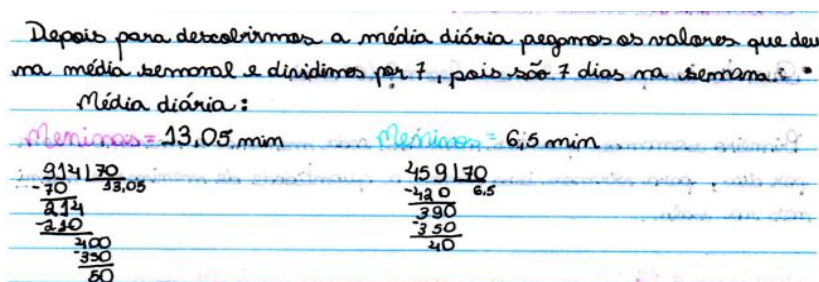 Depois para descobrirmos a média diária pegamos os valores que deu
na média semanal e dividimos por 7, pois são 7 dias na semana.
Média diária:
Meninas = 13,05 min Meninos = 6,5 min
914 | 70 459 | 70
-70 13,05 -420 6,5
214 390
-210 -350
400 40
-350
50